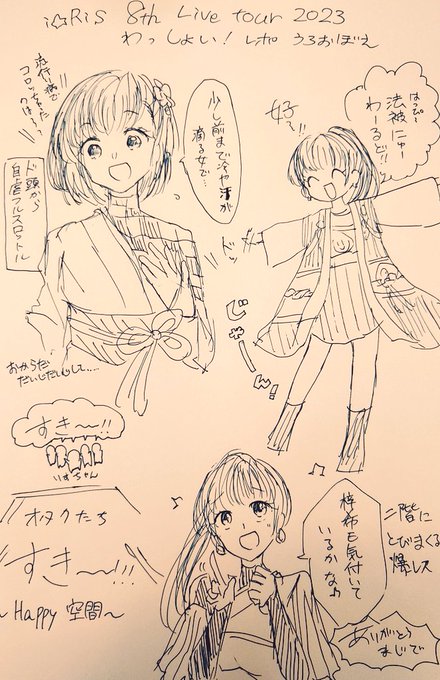 i☆RiS 8th Live tour 2023
わっしょい! レポ うろおぼえ
はっぴー
法被にゅー
わーるど!!
好〜!!
少し前まで冷や汗が
滴る女で…
ド頭から
自虐フルスロットル
ドッ
じゃーん!
おからだ
だいじだいじして……
すき〜!!
りすちゃん
オタクたち
すき〜!!!
~Happy 空間~
も気付いて
いるかなぁ
二階に
とびまくる
爆レス
ありがとう
まじで